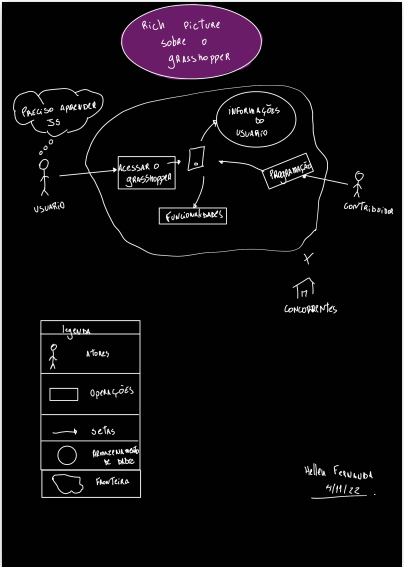 Rich Picture
sobre o
grasshopper
PRECISO APRENDER
JS
INFORMAÇÕES
DO
USUARIO
ACESSAR O
GRASSHOPPER
PROGRAMAÇÃO
USUARIO
FUNCIONALIDADES
CONTRIBUIDOR
X
CONCORRENTES
legenda
ATORES
OPERAÇÕES
SETAS
ARMAZENAMENTO
DE DADO
FRONTEIRA
Hellen FERNANDA
4/11/22